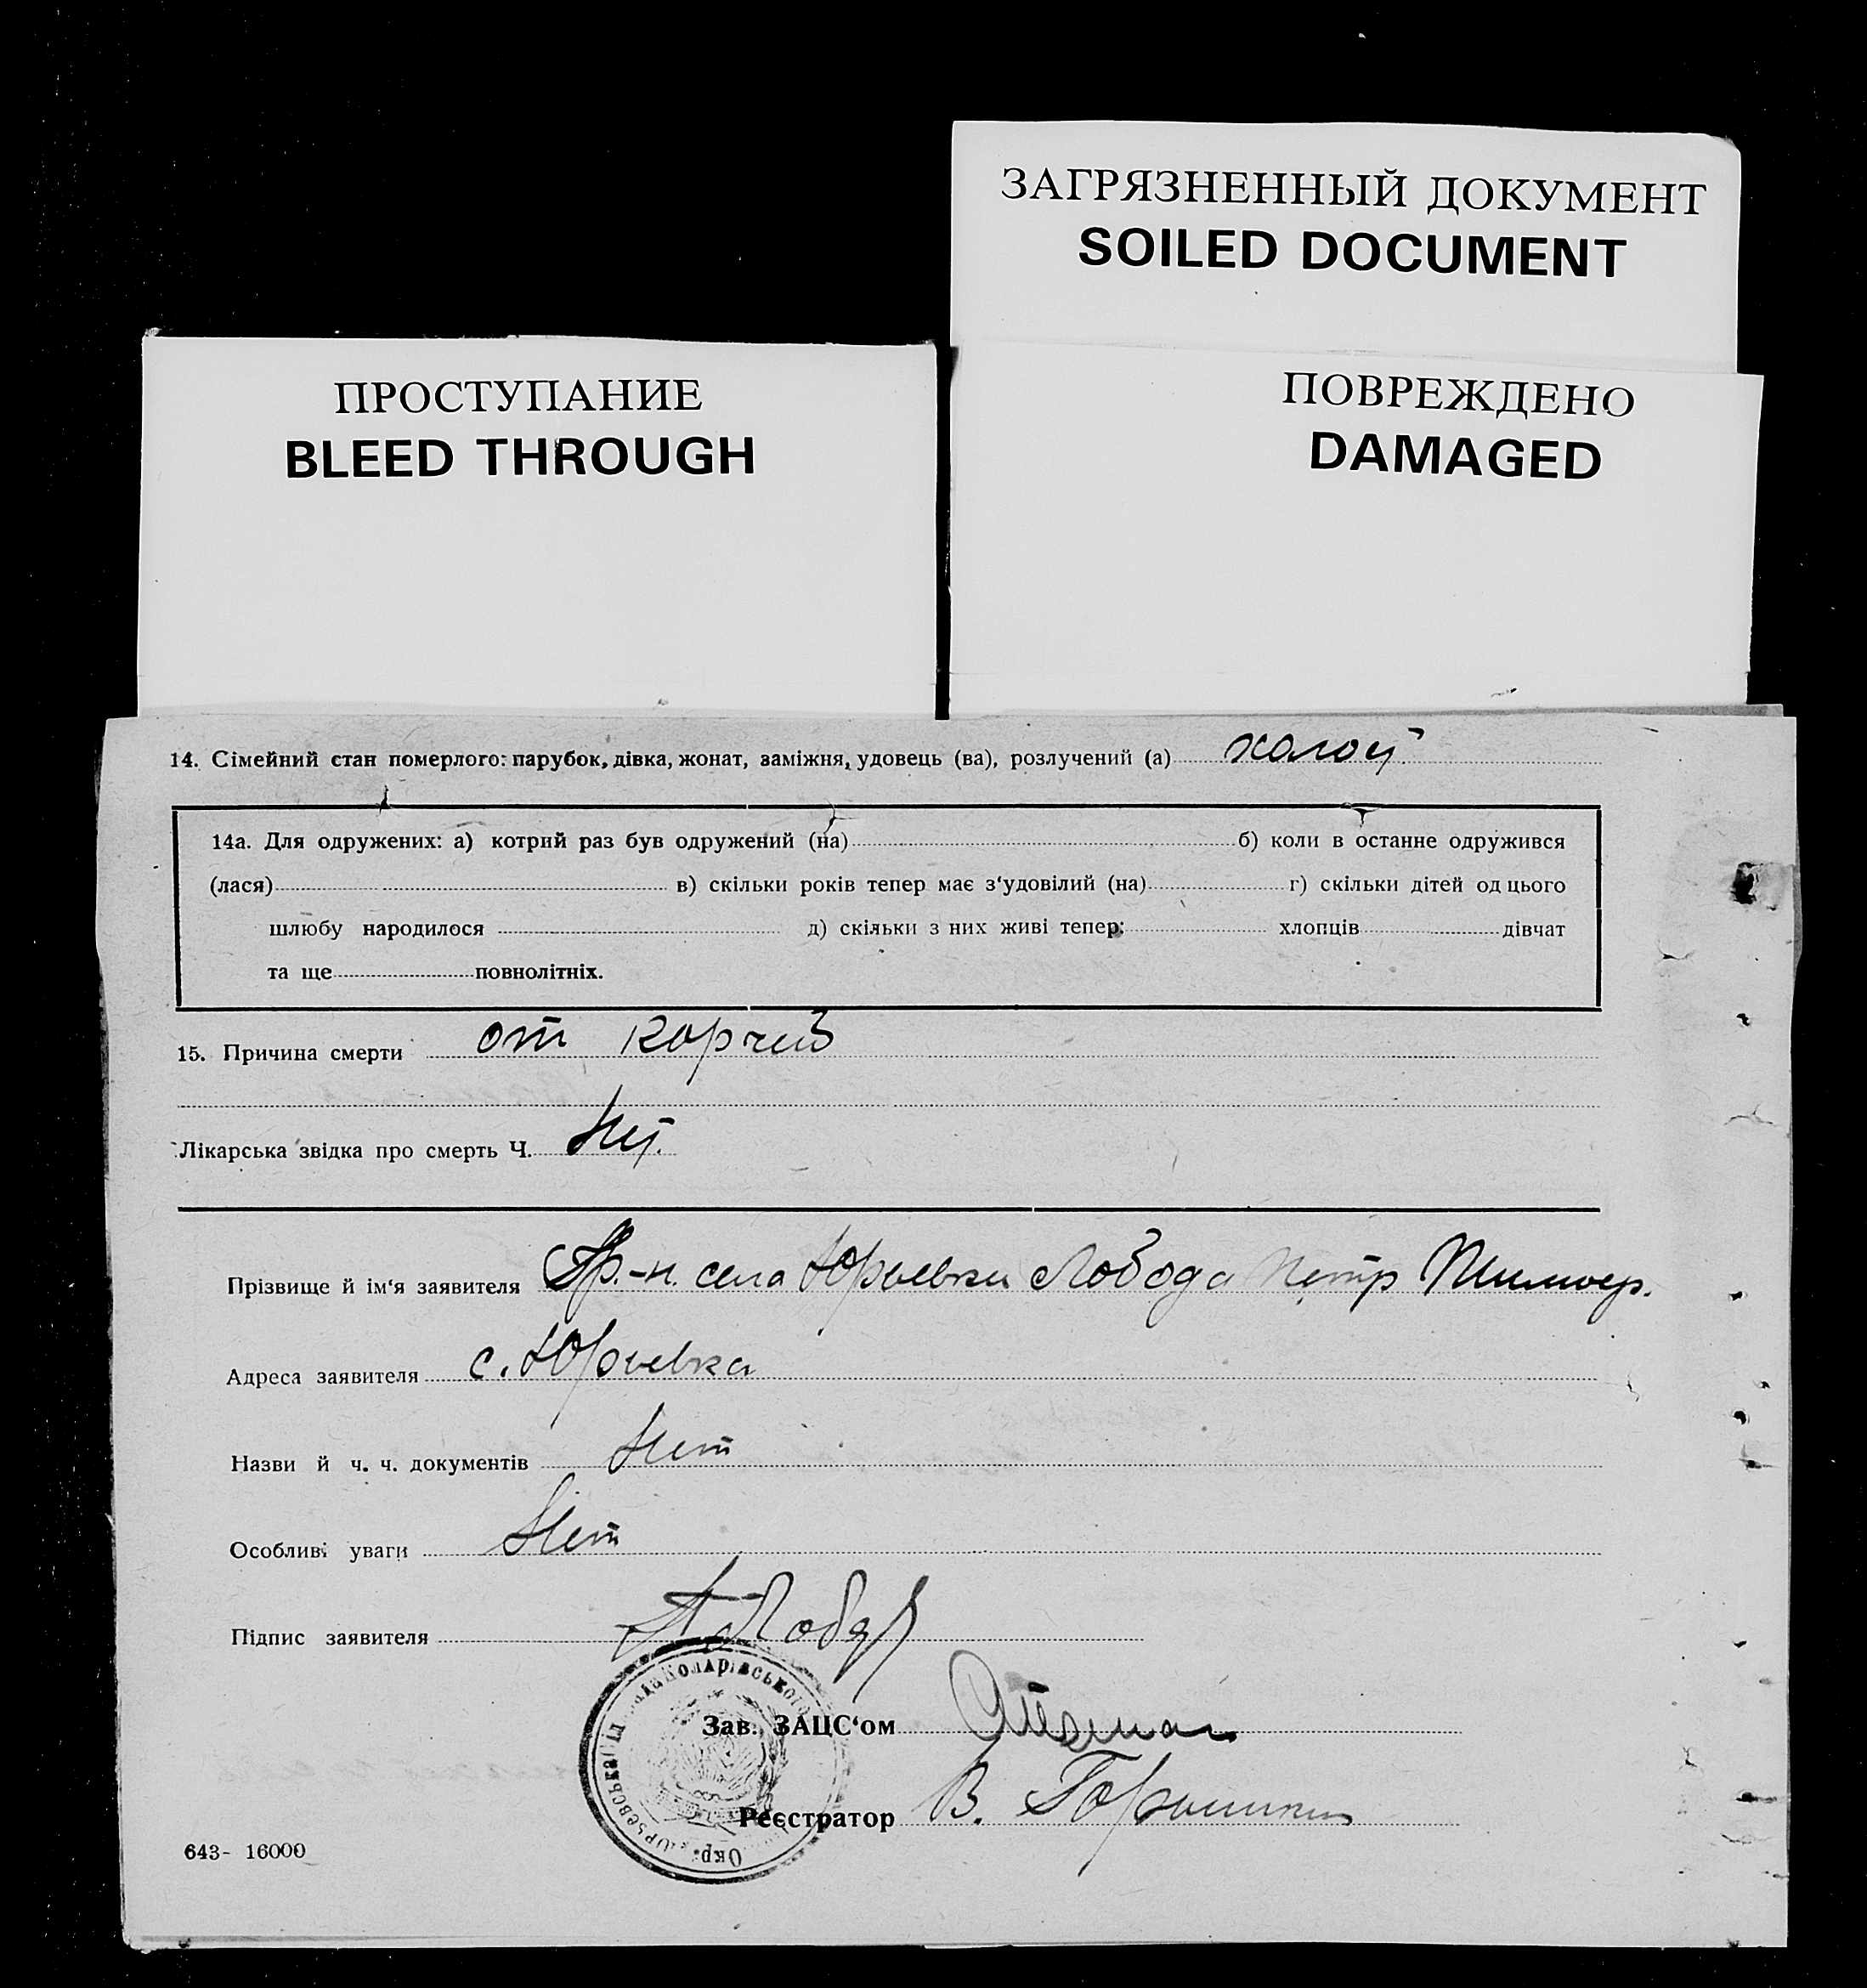 ЗАГРЯЗНЕННЫЙ ДОКУМЕНТ
SOILED DOCUMENT
ПРОСТУПАНИЕ
BLEED THROUGH
ПОВРЕЖДЕНО
DAMAGED
14. Сімейний стан померлого: парубок, дівка, жонат, заміжня, удовець (ва), розлучений (а) холост
14а. Для одружених: а) котрий раз був одружений (на) б) коли в останне одружився
(лася) в) скільки років тепер має з‘удовілий (на) г) скільки дітей од цього
шлюбу народилося д) скільки з них живі тепер: хлопців дівчат
та ще повнолітніх.
15. Причина смерти от корчей
Лікарська звідка про смерть Ч. Нет.
Прізвище й ім‘я заявителя Гр.-н. села Юрьевки Лобода Петр
Адреса заявителя с. Юрьевка
Назви й ч. ч. документів Нет
Особливі уваги Нет
Підпис заявителя П Лобода
Зав. ЗАЦС‘ом
Реєстратор В.
643- 16000